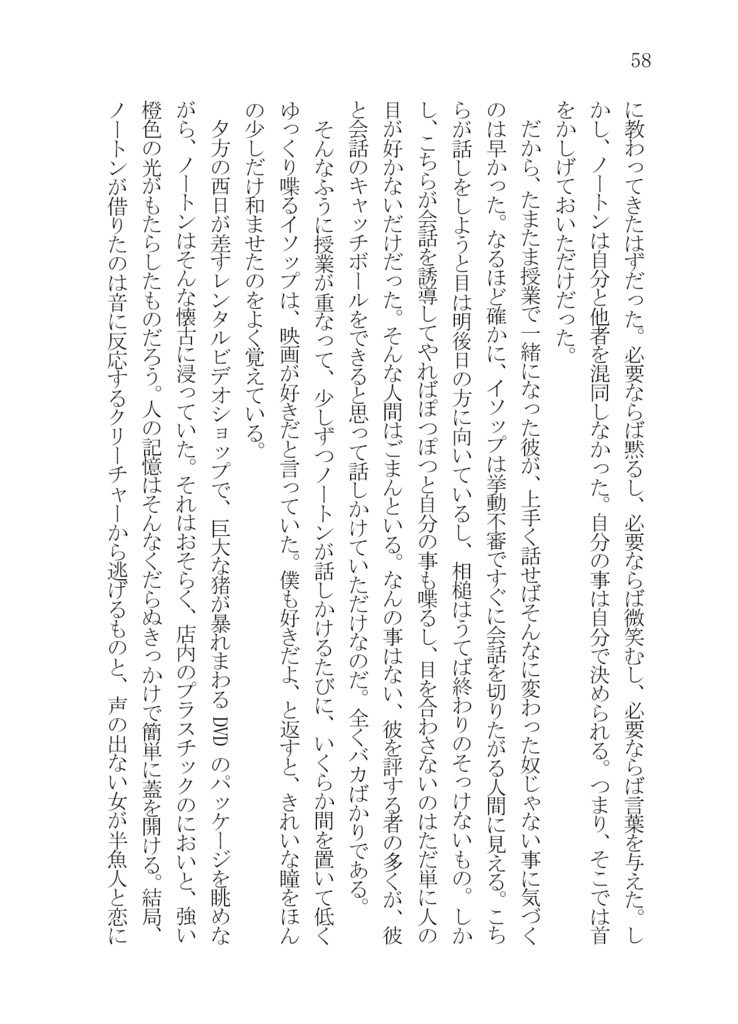 58
に教わってきたはずだった。必要ならば黙るし、必要ならば微笑むし、必要ならば言葉を与えた。し
かし、ノートンは自分と他者を混同しなかった。自分の事は自分で決められる。つまり、そこでは首
をかしげておいただけだった。
だから、たまたま授業で一緒になった彼が、上手く話せばそんなに変わった奴じゃない事に気づく
のは早かった。なるほど確かに、イソップは挙動不審ですぐに会話を切りたがる人間に見える。こち
らが話しをしようと目は明後日の方に向いているし、相槌はうてば終わりのそっけないもの。しか
し、こちらが会話を誘導してやればぽつぽつと自分の事も喋るし、目を合わさないのはただ単に人の
目が好かないだけだった。そんな人間はごまんといる。なんの事はない、彼を評する者の多くが、彼
と会話のキャッチボールをできると思って話しかけていただけなのだ。全くバカばかりである。
そんなふうに授業が重なって、少しずつノートンが話しかけるたびに、いくらか間を置いて低く
ゆっくり喋るイソップは、映画が好きだと言っていた。僕も好きだよ、と返すと、きれいな瞳をほん
の少しだけ和ませたのをよく覚えている。
夕方の西日が差すレンタルビデオショップで、巨大な猪が暴れまわる DVD のパッケージを眺めな
がら、ノートンはそんな懐古に浸っていた。それはおそらく、店内のプラスチックのにおいと、強い
橙色の光がもたらしたものだろう。人の記憶はそんなくだらぬきっかけで簡単に蓋を開ける。結局、
ノートンが借りたのは音に反応するクリーチャーから逃げるものと、声の出ない女が半魚人と恋に